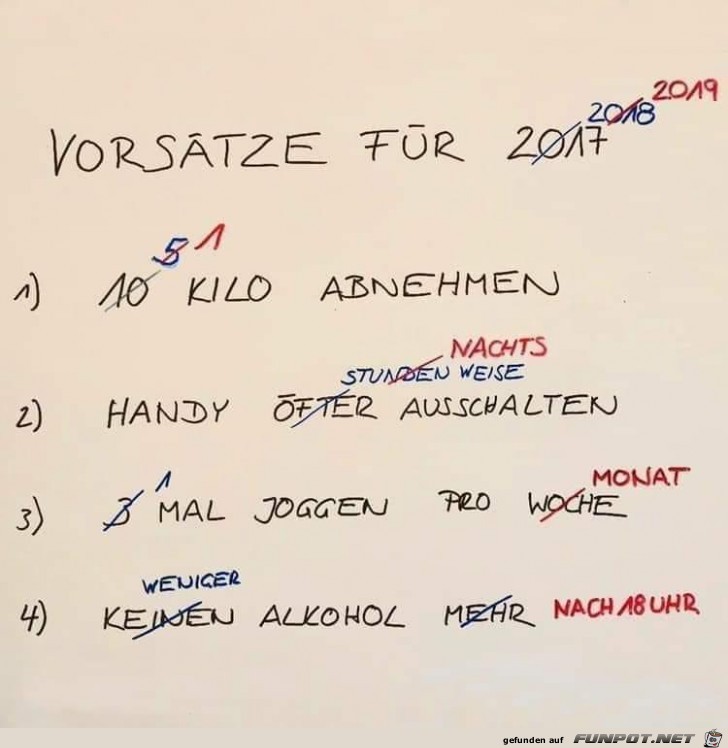 2019
2018
VORSÄTZE FÜR 2017
5 1
1) 10 KILO ABNEHMEN
NACHTS
STUNDEN WEISE
2) HANDY ÖFTER AUSSCHALTEN
1 MONAT
3) 3 MAL JOGGEN PRO WOCHE
WENIGER
4) KEINEN ALKOHOL MEHR NACH 18 UHR
gefunden auf FUNPOT.NET